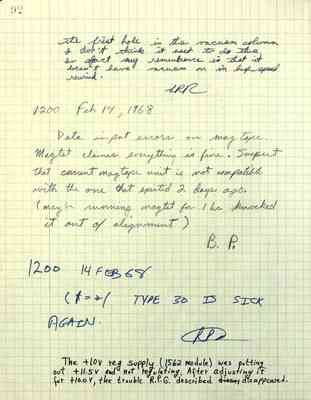 92
the first hole in the vacuum column
I don't think it used to do this
in fact my remembrance is that it
doesn't have vacuum on in high speed
rewind.
1200 Feb 14, 1968
Data input errors on mag tape.
Magtst claims everything is fine. Suspect
that current magtape unit is not compatible
with the one that existed 2 days ago.
(maybe running magtst for 1 hr knocked
it out of alignment)
B. P.
1200 14 FEB 68
TYPE 30 IS SICK
AGAIN.
The +10V reg supply (1562 module) was putting
out +11.5V and not regulating. After adjusting it
for +10.0V, the trouble R.P.G. described disappeared.